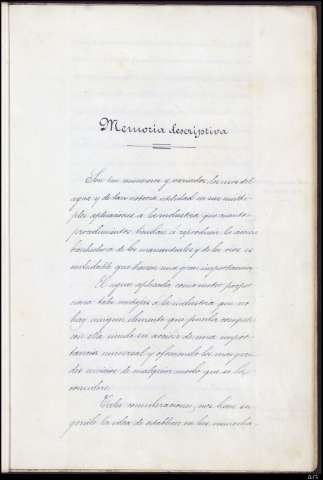 Memoria descriptiva
Son tan numerosos y variados los usos del
agua y de tan notoria utilidad en sus múlti-
ples aplicaciones a la industria, que cuantos
procedimientos tiendan a aprovechar la acción
hidráulica de los manantiales y de los rios es
indudable que tienen una gran importancia.
El agua aplicada como motor propor
ciona tales ventajas a la industria que no
hay ningun elemento que pueda competir
con ella siendo su acción de una impor-
tancia universal y ofreciendo los mas gran
des servicios de cualquier modo que se la
considere.
Tales consideraciones, nos han su
gerido la idea de establecer en las